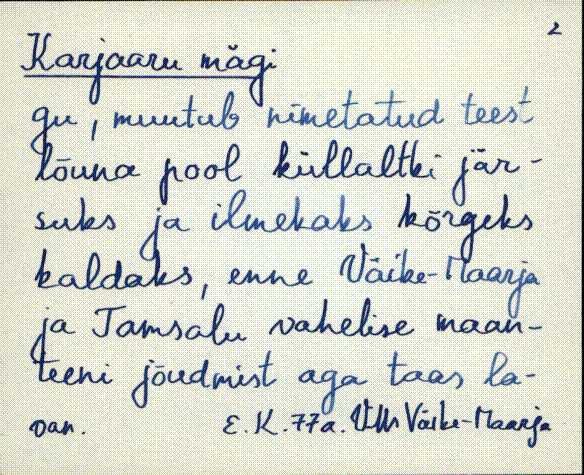 2
Karjaaru mägi
gu, muutub nimetatud teest
lõuna pool küllaltki jär-
suks ja ilmekaks kõrgeks
kaldaks, enne Väike-Maarja
ja Tamsalu vahelise maan-
teeni jõudmist aga taas la-
van. E. K. 77a. VMr Väike-Maarja